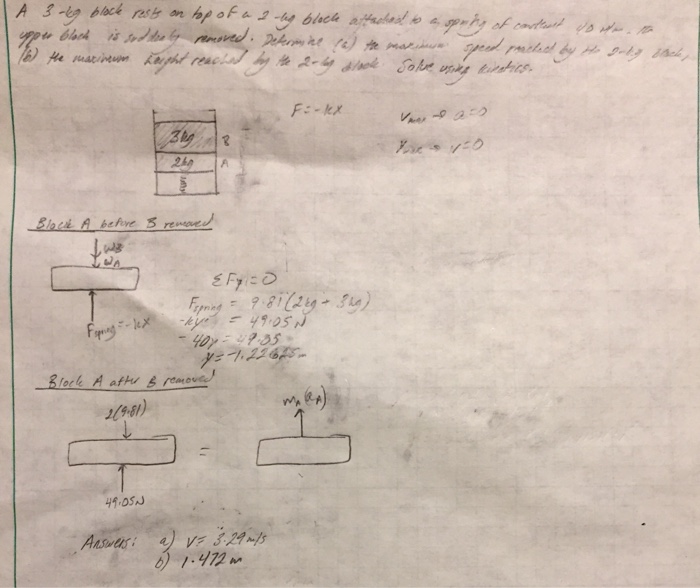 A 3-kg block rests on top of a 2-kg block attached to a spring of constant 40 N/m. The
upper block is suddenly removed. Determine (a) the maximum speed reached by the 2-kg block,
(b) the maximum height reached by the 2-kg block Solve using kinetics.
F=-kx
Vmax → a=0
Ymax → v=0
3kg B
2kg A
Block A before B removed
WB
WA
Fspring=-kx
ΣFy=0
Fspring = 9.81(2kg + 3kg)
-ky = 49.05N
-40y = 49.05
y=-1.22625m
Block A after B removed
2(9.81)
=
mA(aA)
49.05N
Answers: a) v= 3.29 m/s
b) 1.472 m